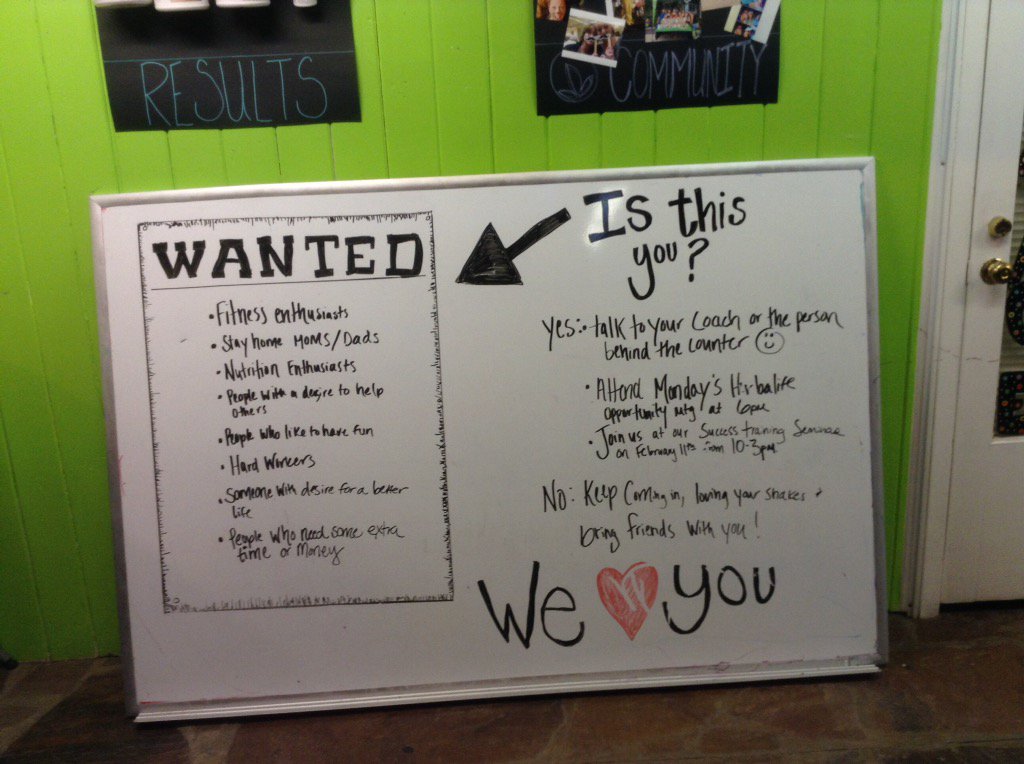 RESULTS
COMMUNITY
WANTED
• Fitness enthusiasts
• Stay home MOMS/Dads
• Nutrition Enthusiasts
• People with a desire to help
others
• People who like to have fun
• Hard Workers
• Someone with desire for a better
life
• People who need some extra
time or money
Is this
you?
Yes: • talk to your coach or the person
behind the counter
• Attend Monday's Herbalife
opportunity mtg at 6pm
• Join us at our Success training Seminar
on February 11th from 10-3pm
No: Keep coming in, loving your shakes +
bring friends with you!
We you